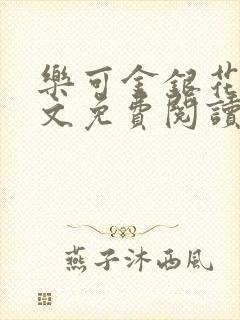 樂可金銀花
文免費閱讀
燕子沐西風